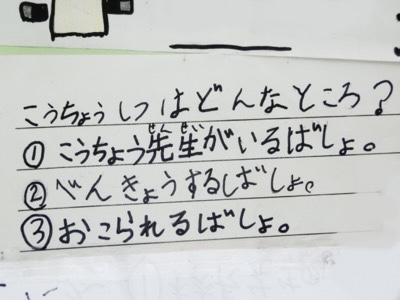 こうちょうしつはどんなところ?
①こうちょう先生がいるばしょ。
②べんきょうするばしょ。
③おこられるばしょ。